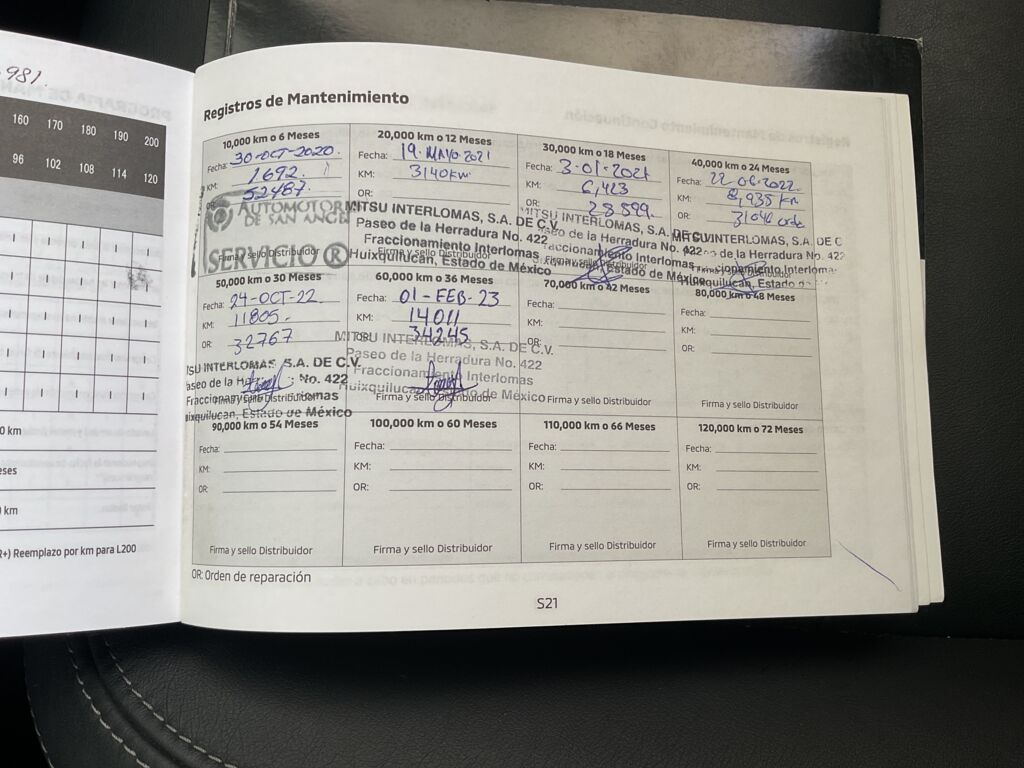 981
160 170 180 190 200
96 102 108 114 120
0 km
eses
km
R+) Reemplazo por km para L200
Registros de Mantenimiento
10,000 km o 6 Meses
Fecha: 30-OCT-2020.
KM: 1692.
OR: 52487.
AUTOMOTOR
DE SAN ANGE
SERVICIO ®
Firma y sello Distribuidor
20,000 km o 12 Meses
Fecha: 19. MAYO-2021
KM: 3140 km
OR:
MITSU INTERLOMAS, S.A. DE C.V.
Paseo de la Herradura No. 422
Fraccionamiento Interlomas
Huixquilucan, Estado de México
30,000 km o 18 Meses
Fecha: 3-01-2021
KM: 6,423
OR: 28599.
MITSU INTERLOMAS, S.A. DE C.V.
Paseo de la Herradura No. 422
Fraccionamiento Interlomas
Estado de México
40,000 km o 24 Meses
Fecha: 22-06-2022.
KM: 8,935 km
OR: 31046
INTERLOMAS, S.A. DE C
Huixquilucan, Estado
50,000 km o 30 Meses
Fecha: 24-OCT-22.
KM: 11805-
OR: 32767
SU INTERLOMAS, S.A. DE C.V.
aseo de la H No. 422
Fraccionam lomas
uixquilucan, Estado de México
60,000 km o 36 Meses
Fecha: 01-FEB-23
KM: 14011
OR: 34245
MITSU INTERLOMAS, S.A. DE C.V.
Paseo de la Herradura No. 422
Fraccionamiento Interlomas
Huixquilucan, Estado de México
Firma y sello Distribuidor
70,000 km o 42 Meses
Fecha:
KM:
OR:
Firma y sello Distribuidor
80,000 km o 48 Meses
Fecha:
KM:
OR:
Firma y sello Distribuidor
90,000 km o 54 Meses
Fecha:
KM:
OR:
Firma y sello Distribuidor
100,000 km o 60 Meses
Fecha:
KM:
OR:
Firma y sello Distribuidor
110,000 km o 66 Meses
Fecha:
KM:
OR:
Firma y sello Distribuidor
120,000 km o 72 Meses
Fecha:
KM:
OR:
Firma y sello Distribuidor
OR: Orden de reparación
S21